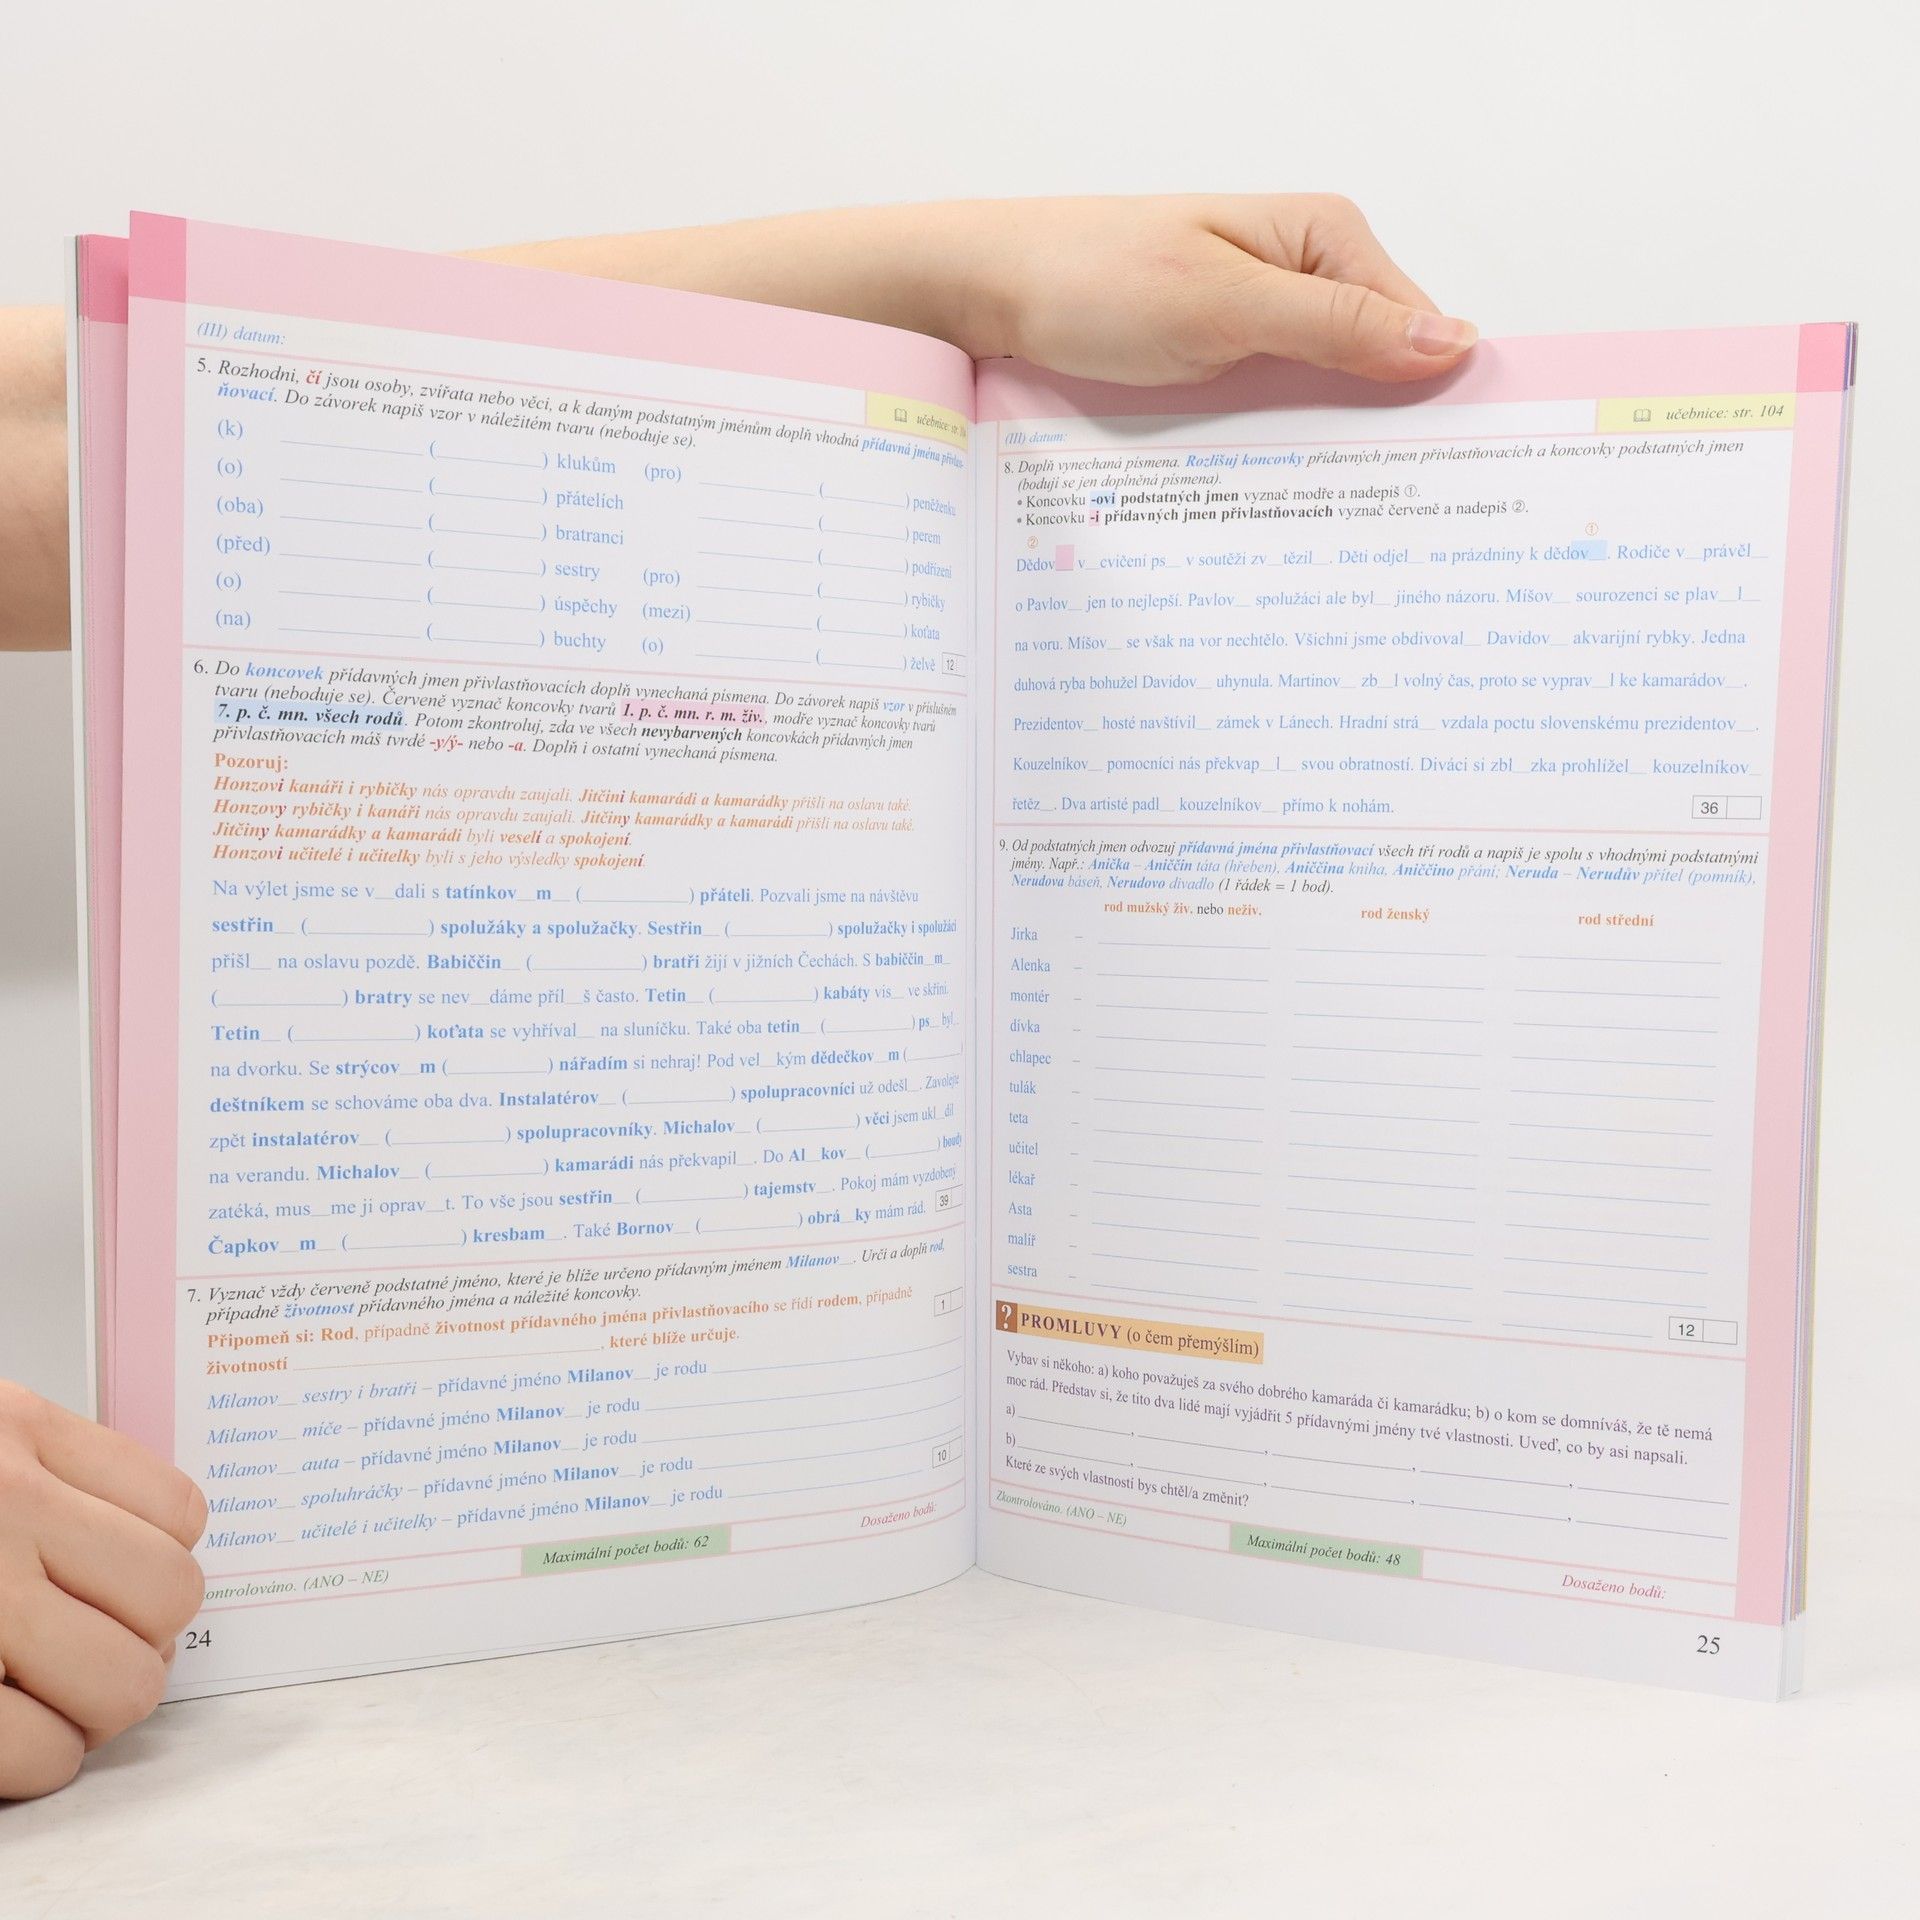 (III) datum:
učebnice: str.
5. Rozhodni, čí jsou osoby, zvířata nebo věci, a k daným podstatným jménům doplň vhodná přídavná jména přivlast-
ňovací. Do závorek napiš vzor v náležitém tvaru (neboduje se).
(k) ____ (____) klukům (pro) ____ (____) peněženku
(o) ____ (____) přátelích ____ (____) perem
(oba) ____ (____) bratranci ____ (____) podřízení
(před) ____ (____) sestry (pro) ____ (____) rybičky
(o) ____ (____) úspěchy (mezi) ____ (____) koťata
(na) ____ (____) buchty (o) ____ (____) želvě 12
6. Do koncovek přídavných jmen přivlastňovacích doplň vynechaná písmena. Do závorek napiš vzor v příslušném
tvaru (neboduje se). Červeně vyznač koncovky tvarů 1. p. č. mn. r. m. živ., modře vyznač koncovky tvarů
7. p. č. mn. všech rodů. Potom zkontroluj, zda ve všech nevybarvených koncovkách přídavných jmen
přivlastňovacích máš tvrdé -y/ý- nebo -a. Doplň i ostatní vynechaná písmena.
Pozoruj:
Honzovi kanáři i rybičky nás opravdu zaujali. Jitčini kamarádi a kamarádky přišli na oslavu také.
Honzovy rybičky i kanáři nás opravdu zaujali. Jitčiny kamarádky a kamarádi přišli na oslavu také.
Jitčiny kamarádky a kamarádi byli veselí a spokojení.
Honzovi učitelé i učitelky byli s jeho výsledky spokojení.
Na výlet jsme se v__dali s tatínkov__m__ (____) přáteli. Pozvali jsme na návštěvu
sestřin__ (____) spolužáky a spolužačky. Sestřin__ (____) spolužačky i spolužáci
přišl__ na oslavu pozdě. Babiččin__ (____) bratři žijí v jižních Čechách. S babiččin__m__
(____) bratry se nev__dáme příl__š často. Tetin__ (____) kabáty vis__ ve skříni.
Tetin__ (____) koťata se vyhříval__ na sluníčku. Také oba tetin__ (____) ps__ byl__
na dvorku. Se strýcov__m (____) nářadím si nehraj! Pod vel__kým dědečkov__m (____)
deštníkem se schováme oba dva. Instalatérov__ (____) spolupracovníci už odešl__. Zavolejte
zpět instalatérov__ (____) spolupracovníky. Michalov__ (____) věci jsem ukl__dil
na verandu. Michalov__ (____) kamarádi nás překvapil__. Do Al__kov__ (____) boudy
zatéká, mus__me ji oprav__t. To vše jsou sestřin__ (____) tajemstv__. Pokoj mám vyzdobený
Čapkov__m__ (____) kresbam__. Také Bornov__ (____) obrá__ky mám rád. 39
7. Vyznač vždy červeně podstatné jméno, které je blíže určeno přídavným jménem Milanov__. Urči a doplň rod,
případně životnost přídavného jména a náležité koncovky.
Připomeň si: Rod, případně životnost přídavného jména přivlastňovacího se řídí rodem, případně 1
životností ____, které blíže určuje.
Milanov__ sestry i bratři – přídavné jméno Milanov__ je rodu ____
Milanov__ míče – přídavné jméno Milanov__ je rodu ____
Milanov__ auta – přídavné jméno Milanov__ je rodu ____
Milanov__ spoluhráčky – přídavné jméno Milanov__ je rodu ____ 10
Milanov__ učitelé i učitelky – přídavné jméno Milanov__ je rodu ____
ontrolováno. (ANO – NE)
Maximální počet bodů: 62
Dosaženo bodů:
24
učebnice: str. 104
(III) datum:
8. Doplň vynechaná písmena. Rozlišuj koncovky přídavných jmen přivlastňovacích a koncovky podstatných jmen
(bodují se jen doplněná písmena).
• Koncovku -ovi podstatných jmen vyznač modře a nadepiš ①.
• Koncovku -i přídavných jmen přivlastňovacích vyznač červeně a nadepiš ②.
② ①
Dědov__ v__cvičení ps__ v soutěži zv__tězil__. Děti odjel__ na prázdniny k dědov__. Rodiče v__právěl__
o Pavlov__ jen to nejlepší. Pavlov__ spolužáci ale byl__ jiného názoru. Míšov__ sourozenci se plav__l__
na voru. Míšov__ se však na vor nechtělo. Všichni jsme obdivoval__ Davidov__ akvarijní rybky. Jedna
duhová ryba bohužel Davidov__ uhynula. Martinov__ zb__l volný čas, proto se vyprav__l ke kamarádov__.
Prezidentov__ hosté navštívil__ zámek v Lánech. Hradní strá__ vzdala poctu slovenskému prezidentov__.
Kouzelníkov__ pomocníci nás překvap__l__ svou obratností. Diváci si zbl__zka prohlížel__ kouzelníkov__
řetěz__. Dva artisté padl__ kouzelníkov__ přímo k nohám. 36
9. Od podstatných jmen odvozuj přídavná jména přivlastňovací všech tří rodů a napiš je spolu s vhodnými podstatnými
jmény. Např.: Anička – Aniččin táta (hřeben), Aniččina kniha, Aniččino přání; Neruda – Nerudův přítel (pomník),
Nerudova báseň, Nerudovo divadlo (1 řádek = 1 bod).
rod mužský živ. nebo neživ. rod ženský rod střední
Jirka –
Alenka –
montér –
dívka –
chlapec –
tulák –
teta –
učitel –
lékař –
Asta –
malíř –
sestra –
12
? PROMLUVY (o čem přemýšlím)
Vybav si někoho: a) koho považuješ za svého dobrého kamaráda či kamarádku; b) o kom se domníváš, že tě nemá
moc rád. Představ si, že tito dva lidé mají vyjádřit 5 přídavnými jmény tvé vlastnosti. Uveď, co by asi napsali.
a) ____, ____, ____, ____, ____
b) ____, ____, ____, ____, ____
Které ze svých vlastností bys chtěl/a změnit?
Zkontrolováno. (ANO – NE)
Maximální počet bodů: 48
Dosaženo bodů:
25